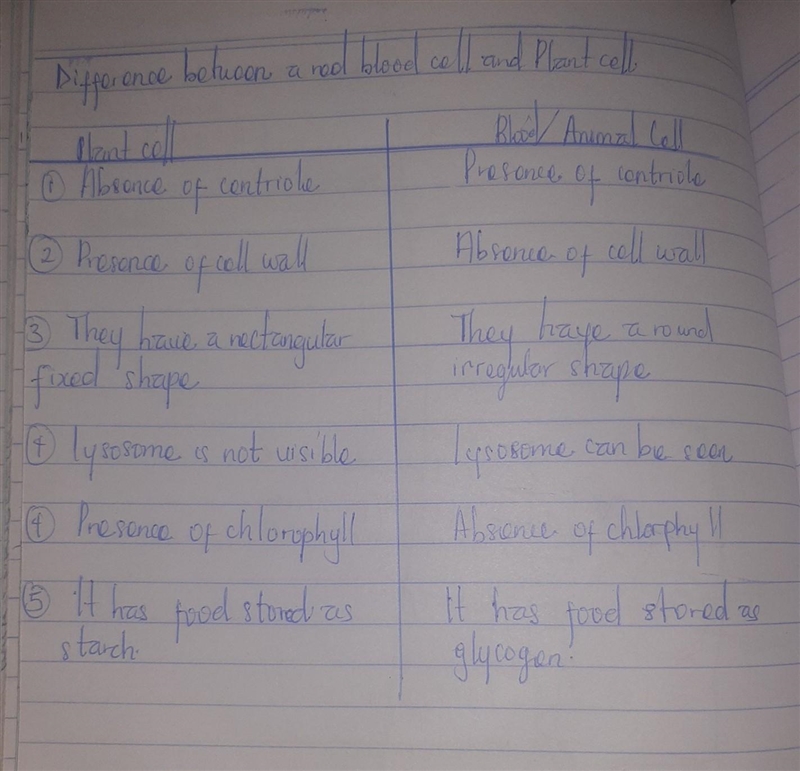 Difference between a red blood cell and Plant cell.
Plant cell
Blood/Animal Cell
① Absence of centriole
Presence of centriole
② Presence of cell wall
Absence of cell wall
③ They have a rectangular
fixed shape
They have a round
irregular shape
④ Lysosome is not visible
Lysosome can be seen
④ Presence of chlorophyll
Absence of chlorphyll
⑤ It has food stored as
starch.
It has food stored as
glycogen.